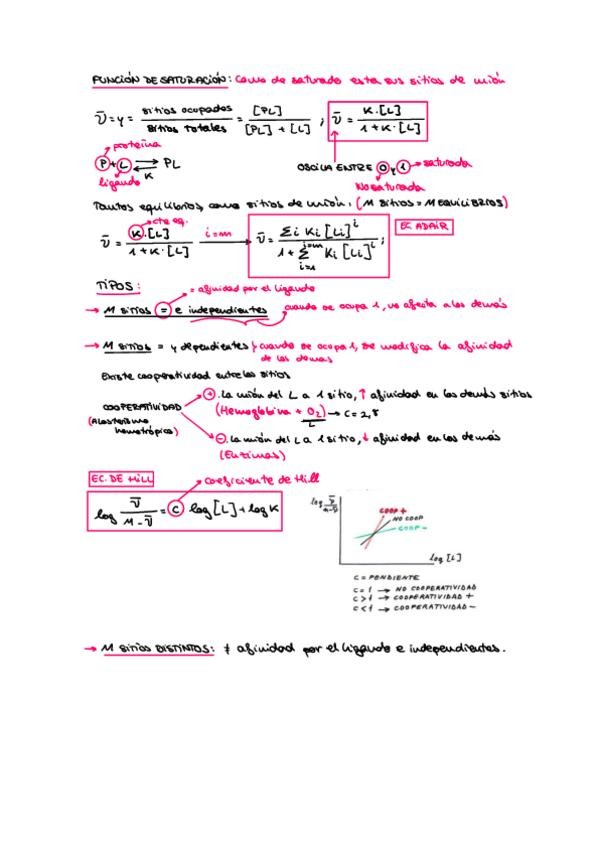 FUNCIÓN DE SATURACIÓN: Como de saturado esta sus sitios de unión
ν̄ = y = sitios ocupados / sitios totales = [PL] / [PL] + [L] ; ν̄ = K·[L] / 1 + K·[L]
proteína
P + L ⇄ PL
K
ligando
OSCILA ENTRE 0 y 1 → saturada
No saturada
Tantos equilibrios, como sitios de unión. (M sitios = M EQUILIBRIOS)
cte eq.
ν̄ = K·[L] / 1 + K·[L] i=m → ν̄ = Σ i Ki [Li]^i / 1 + Σ Ki [Li]^i ; i=m i=1
EC ADAIR
TIPOS:
= afinidad por el ligando
→ M sitios = e independientes cuando se ocupa 1, no afecta a los demás
→ M sitios = y dependientes cuando se ocupa 1, se modifica la afinidad
de los demas
Existe cooperatividad entre los sitios
COOPERATIVIDAD
(Alosterismo
homotrópico)
+ . La unión del L a 1 sitio, ↑ afinidad en los demás sitios
(Hemoglobina + O2) → C = 2,8
L
- . la unión del L a 1 sitio, ↓ afinidad en los demás
(Enzimas)
EC. DE HILL
coeficiente de Hill
log ν̄ / M - ν̄ = C log [L] + log K
log ν̄ / M - ν̄
COOP +
NO COOP
COOP -
log [L]
C = PENDIENTE
C = 1 → NO COOPERATIVIDAD
C > 1 → COOPERATIVIDAD +
C < 1 → COOPERATIVIDAD -
→ M sitios DISTINTOS: ≠ afinidad por el ligando e independientes.